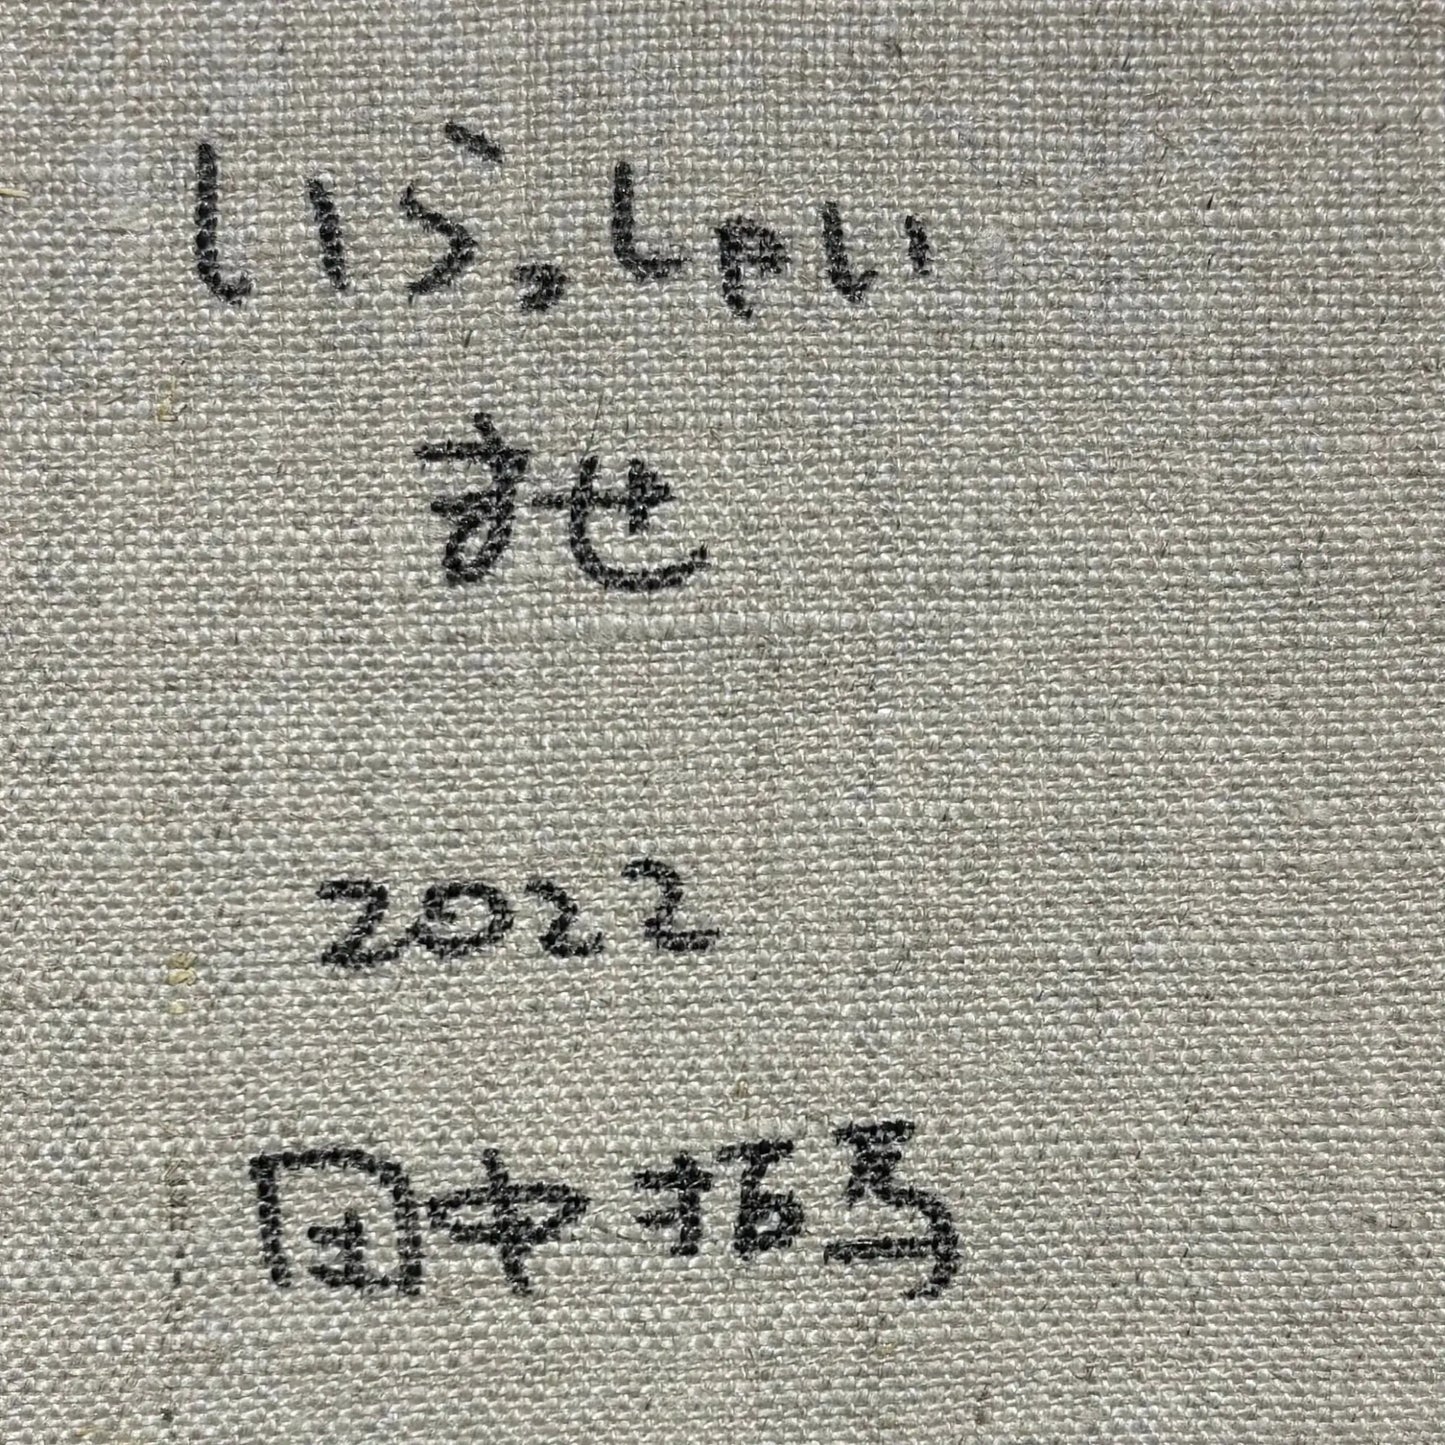 いらっしゃい
ませ
2022
田中拓馬